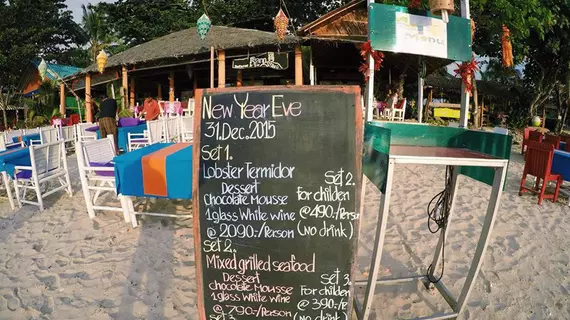 Menu
New Year Eve
31.Dec.2015
Set 1.
Lobster Termidor
Dessert
Chocolate Mousse
1 glass White wine
@ 2090.-/Person
Set 2.
Mixed grilled seafood
Dessert
Chocolate Mousse
1 glass White wine
@ 790.-/Person
Set 3.
Set 2.
For childen
@ 490.-/Person
(No drink)
Set 3.
For childen
@ 390.-/
(No drink)